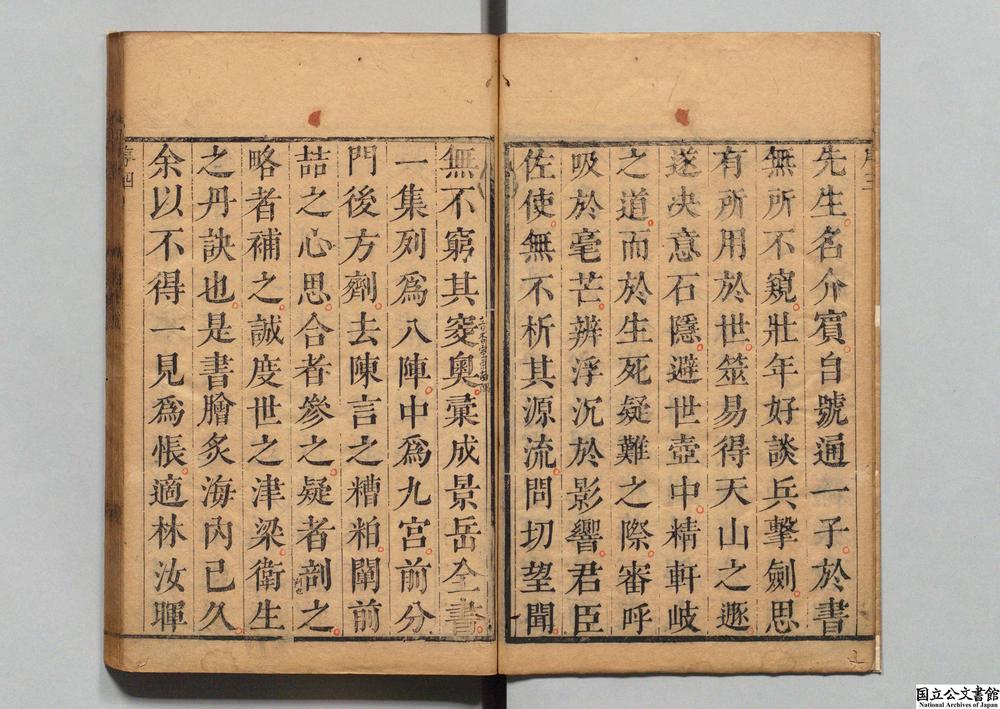 先生名介賓自號通一子於書
無所不窺壯年好談兵擊劍思
有所用於世筮易得天山之遯
遂决意石隱避世壺中精軒岐
之道而於生死疑難之際審呼
吸於毫芒辨浮沉於影響君臣
佐使無不析其源流問切望聞
無不窮其窔奧彙成景岳全書
一集列爲八陣中爲九宮前分
門後方劑去陳言之糟粕闡前
喆之心思合者參之疑者剖之
略者補之誠度世之津梁衛生
之丹訣也是書膾炙海內已久
余以不得一見爲悵適林汝暉
序四
国立公文書館
National Archives of Japan